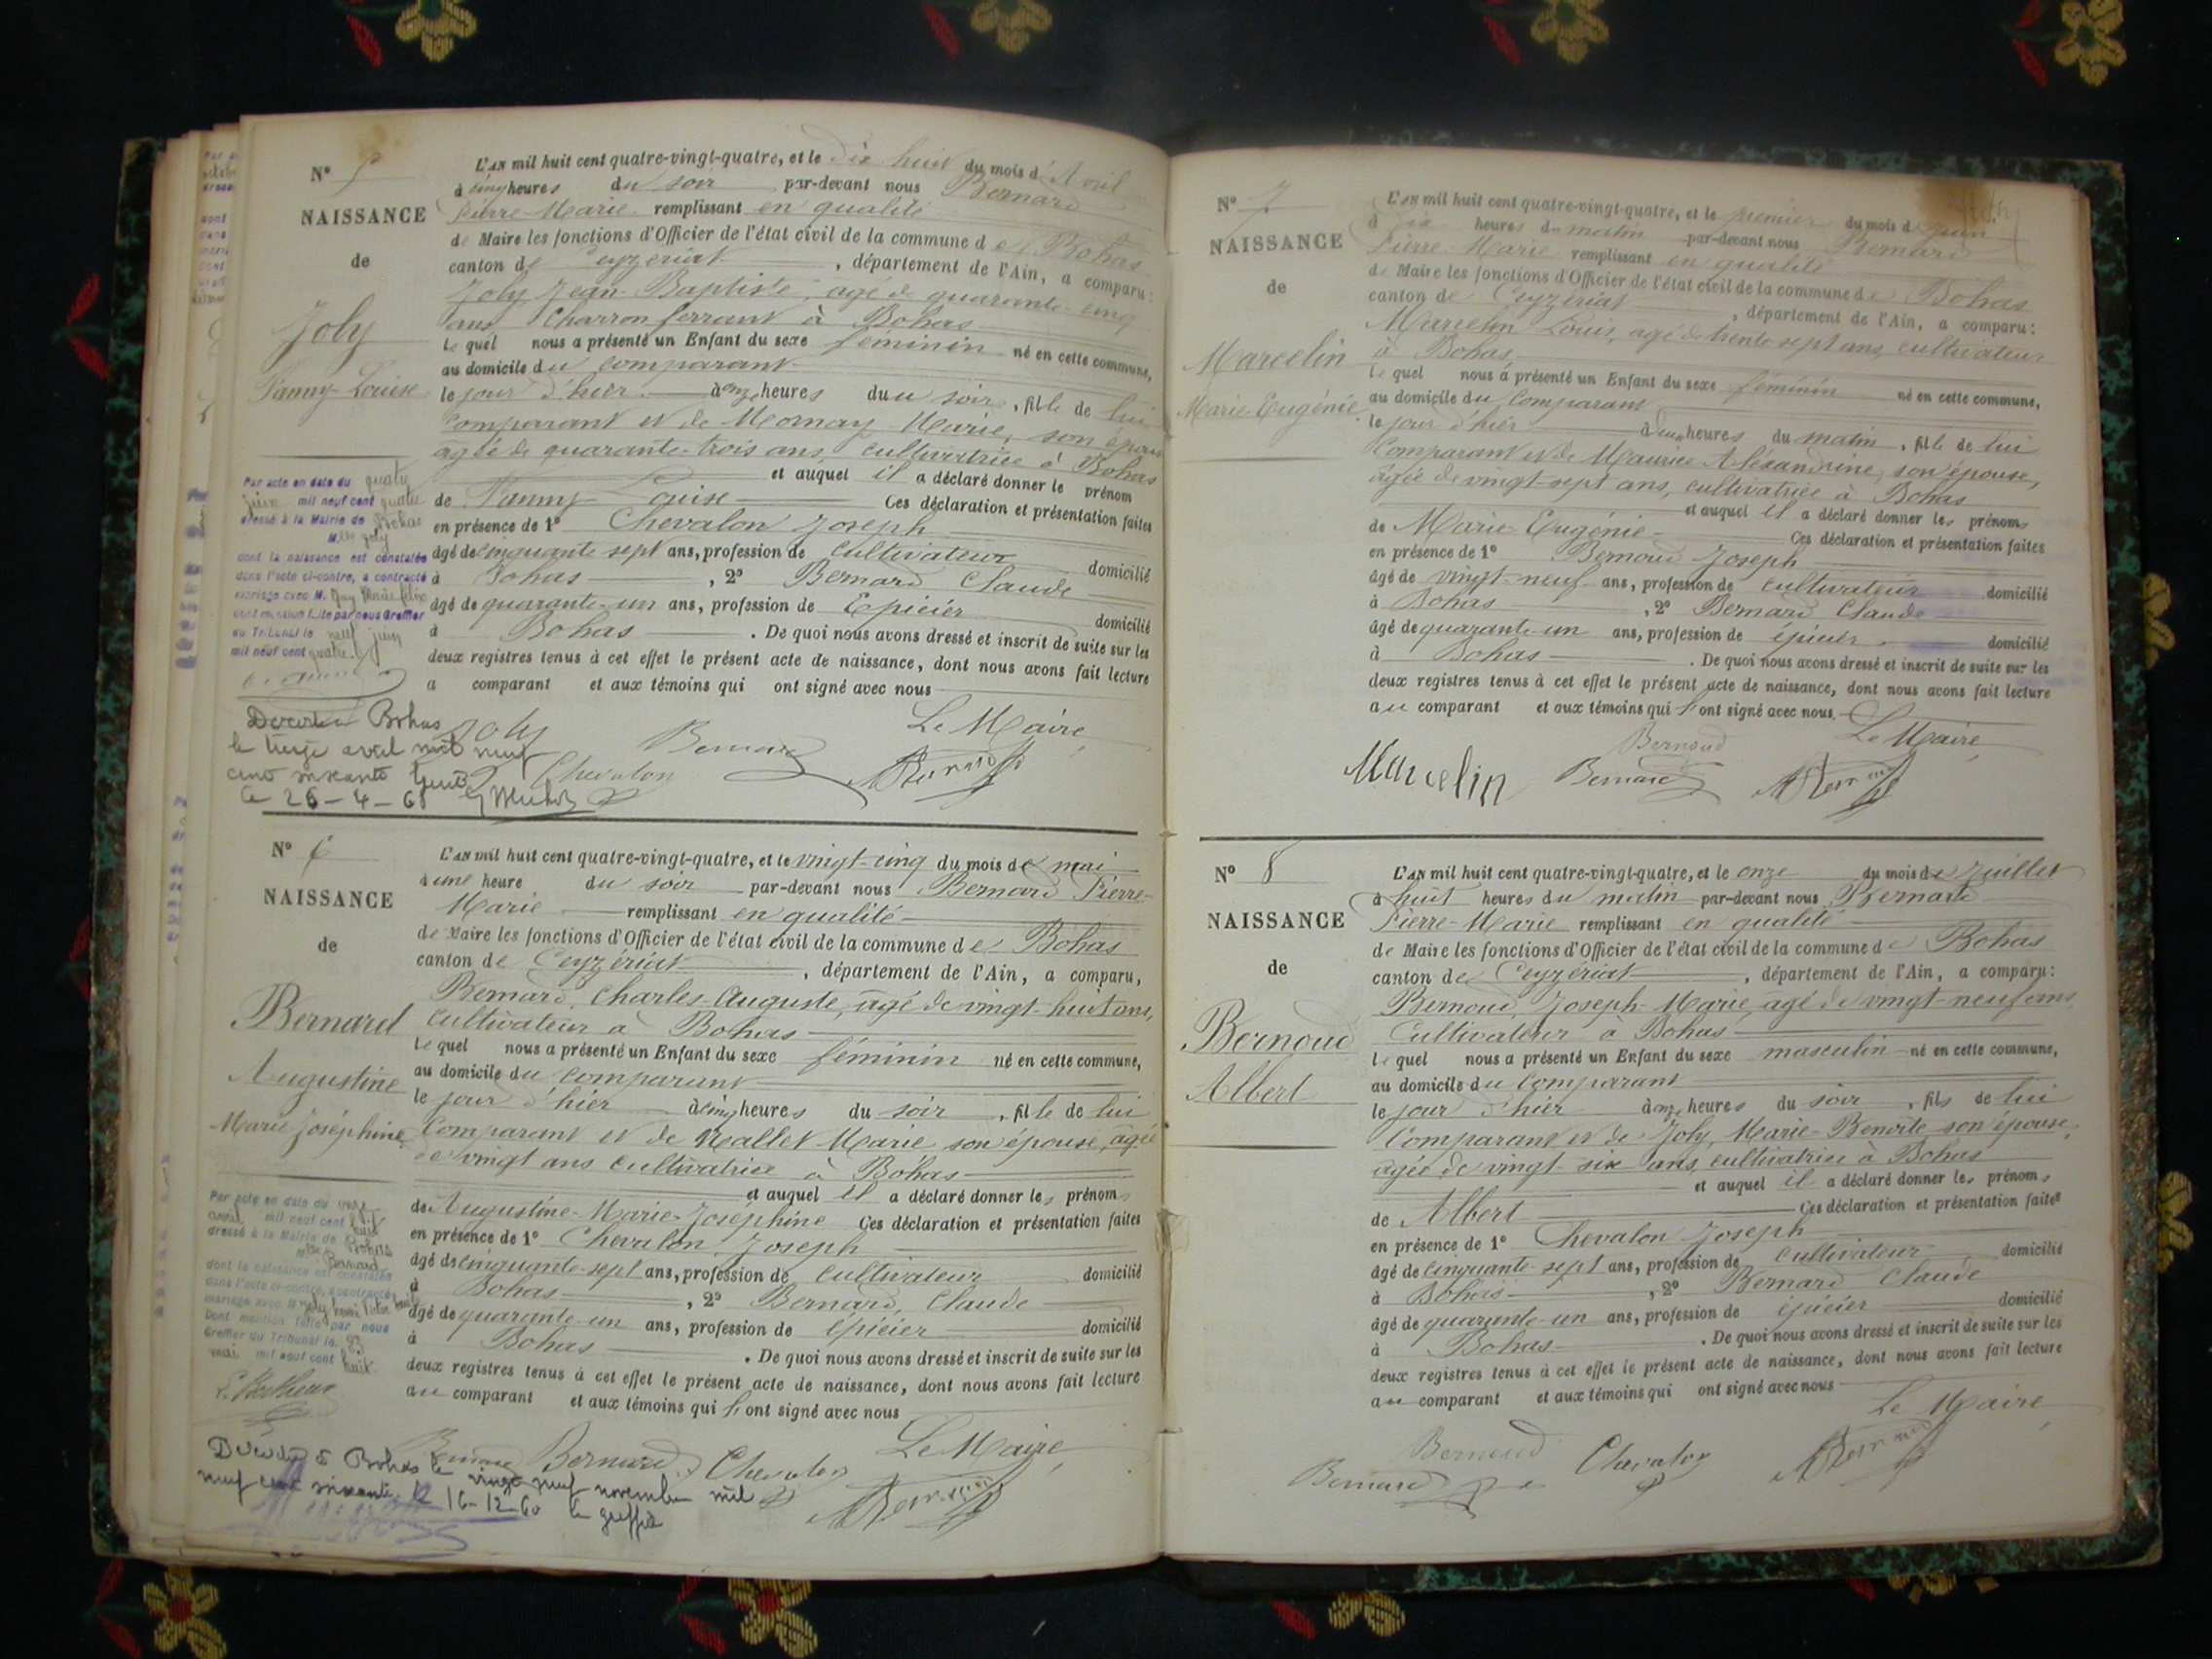 N° 5
NAISSANCE
de
Joly
Fanny-Louise
L'AN mil huit cent quatre-vingt-quatre, et le dix huit du mois d'Avril
à cinq heures du soir par-devant nous Bernard
Pierre-Marie remplissant en qualité
de Maire les fonctions d'Officier de l'état civil de la commune de Bohas
canton de Ceyzériat, département de l'Ain, a comparu:
Joly Jean-Baptiste, agé de quarante-cinq
ans Charron ferrant à Bohas
Le quel nous a présenté un Enfant du sexe féminin né en cette commune,
au domicile du comparant
le jour d'hier à onze heures du soir, fille de lui
Comparant et de Mornay Marie, son épouse
agée de quarante-trois ans, cultivatrice à Bohas
et auquel il a déclaré donner le prénom
de Fanny-Louise Ces déclaration et présentation faites
en présence de 1° Chevalon Joseph
âgé de cinquante sept ans, profession de cultivateur domicilié
à Bohas, 2° Bernard Claude
âgé de quarante-un ans, profession de Epicier domicilié
à Bohas. De quoi nous avons dressé et inscrit de suite sur les
deux registres tenus à cet effet le présent acte de naissance, dont nous avons fait lecture
a comparant et aux témoins qui ont signé avec nous
Le Maire,
Joly Bernard
Chevalon
Par acte en date du quatre
juin mil neuf cent quatre
dressé à la Mairie de Bohas
Mlle Joly
dont la naissance est constatée
dans l'acte ci-contre, a contracté
mariage avec M.
dont mention faite par nous Greffier
du Tribunal le neuf juin
mil neuf cent quatre.
Décédée à Bohas
le treize avril mil neuf
cent soixante huit
le 26-4-68
N° 6
NAISSANCE
de
Bernard
Augustine
Marie Joséphine
L'AN mil huit cent quatre-vingt-quatre, et le vingt-cinq du mois de mai
à une heure du soir par-devant nous Bernard Pierre-
Marie remplissant en qualité
de Maire les fonctions d'Officier de l'état civil de la commune de Bohas
canton de Ceyzériat, département de l'Ain, a comparu,
Bernard, Charles-Auguste, âgé de vingt-huit ans,
Cultivateur à Bohas
Le quel nous a présenté un Enfant du sexe féminin né en cette commune,
au domicile du comparant
le jour d'hier à cinq heures du soir, fille de lui
Comparant et de Mallet Marie son épouse, âgée
de vingt ans cultivatrice à Bohas
et auquel il a déclaré donner les prénoms
de Augustine-Marie-Joséphine Ces déclaration et présentation faites
en présence de 1° Chevalon, Joseph
âgé de cinquante-sept ans, profession de cultivateur domicilié
à Bohas, 2° Bernard, Claude
âgé de quarante-un ans, profession de épicier domicilié
à Bohas. De quoi nous avons dressé et inscrit de suite sur les
deux registres tenus à cet effet le présent acte de naissance, dont nous avons fait lecture
au comparant et aux témoins qui l'ont signé avec nous
Le Maire,
Bernard Chevalon
Par acte en date du
mil neuf cent huit
dressé à la Mairie de Bohas
Mlle Bernard
dont la naissance est constatée
dans l'acte ci-contre, a contracté
mariage avec M. Joly
Dont mention faite par nous
Greffier du Tribunal le 23
mai mil neuf cent huit
Décédée à Bohas le vingt neuf novembre mil
neuf cent soixante. le 16-12-60 le greffier
N° 7
NAISSANCE
de
Marcelin
Marie-Eugénie
L'AN mil huit cent quatre-vingt-quatre, et le premier du mois de juin
à dix heures du matin par-devant nous Bernard
Pierre-Marie remplissant en qualité
de Maire les fonctions d'Officier de l'état civil de la commune de Bohas
canton de Ceyzériat, département de l'Ain, a comparu:
Marcelin Louis, agé de trente sept ans, cultivateur
à Bohas
Le quel nous a présenté un Enfant du sexe féminin né en cette commune,
au domicile du Comparant
le jour d'hier à heures du matin, fille de lui
Comparant et de Maurice Aléxandrine, son épouse,
âgée de vingt-sept ans, cultivatrice à Bohas
et auquel il a déclaré donner les prénoms
de Marie-Eugénie Ces déclaration et présentation faites
en présence de 1° Bernoud Joseph
âgé de vingt-neuf ans, profession de cultivateur domicilié
à Bohas, 2° Bernard Claude
âgé de quarante-un ans, profession de épicier domicilié
à Bohas. De quoi nous avons dressé et inscrit de suite sur les
deux registres tenus à cet effet le présent acte de naissance, dont nous avons fait lecture
au comparant et aux témoins qui l'ont signé avec nous.
Le Maire,
Bernoud
Marcelin Bernard
N° 8
NAISSANCE
de
Bernoud
Albert
L'AN mil huit cent quatre-vingt-quatre, et le onze du mois de Juillet
à huit heures du matin par-devant nous Bernard
Pierre-Marie remplissant en qualité
de Maire les fonctions d'Officier de l'état civil de la commune de Bohas
canton de Ceyzériat, département de l'Ain, a comparu:
Bernoud, Joseph-Marie, agé de vingt-neuf ans
Cultivateur à Bohas
le quel nous a présenté un Enfant du sexe masculin né en cette commune,
au domicile du Comparant
le jour d'hier à onze heures du soir, fils de lui
Comparant et de Joly, Marie-Benoite son épouse,
agée de vingt-six ans, cultivatrice à Bohas
et auquel il a déclaré donner les prénoms
de Albert Ces déclaration et présentation faites
en présence de 1° Chevalon Joseph
âgé de cinquante-sept ans, profession de cultivateur domicilié
à Bohas, 2° Bernard Claude
âgé de quarante-un ans, profession de épicier domicilié
à Bohas. De quoi nous avons dressé et inscrit de suite sur les
deux registres tenus à cet effet le présent acte de naissance, dont nous avons fait lecture
au comparant et aux témoins qui ont signé avec nous
Le Maire,
Bernoud Chevalon
Bernard